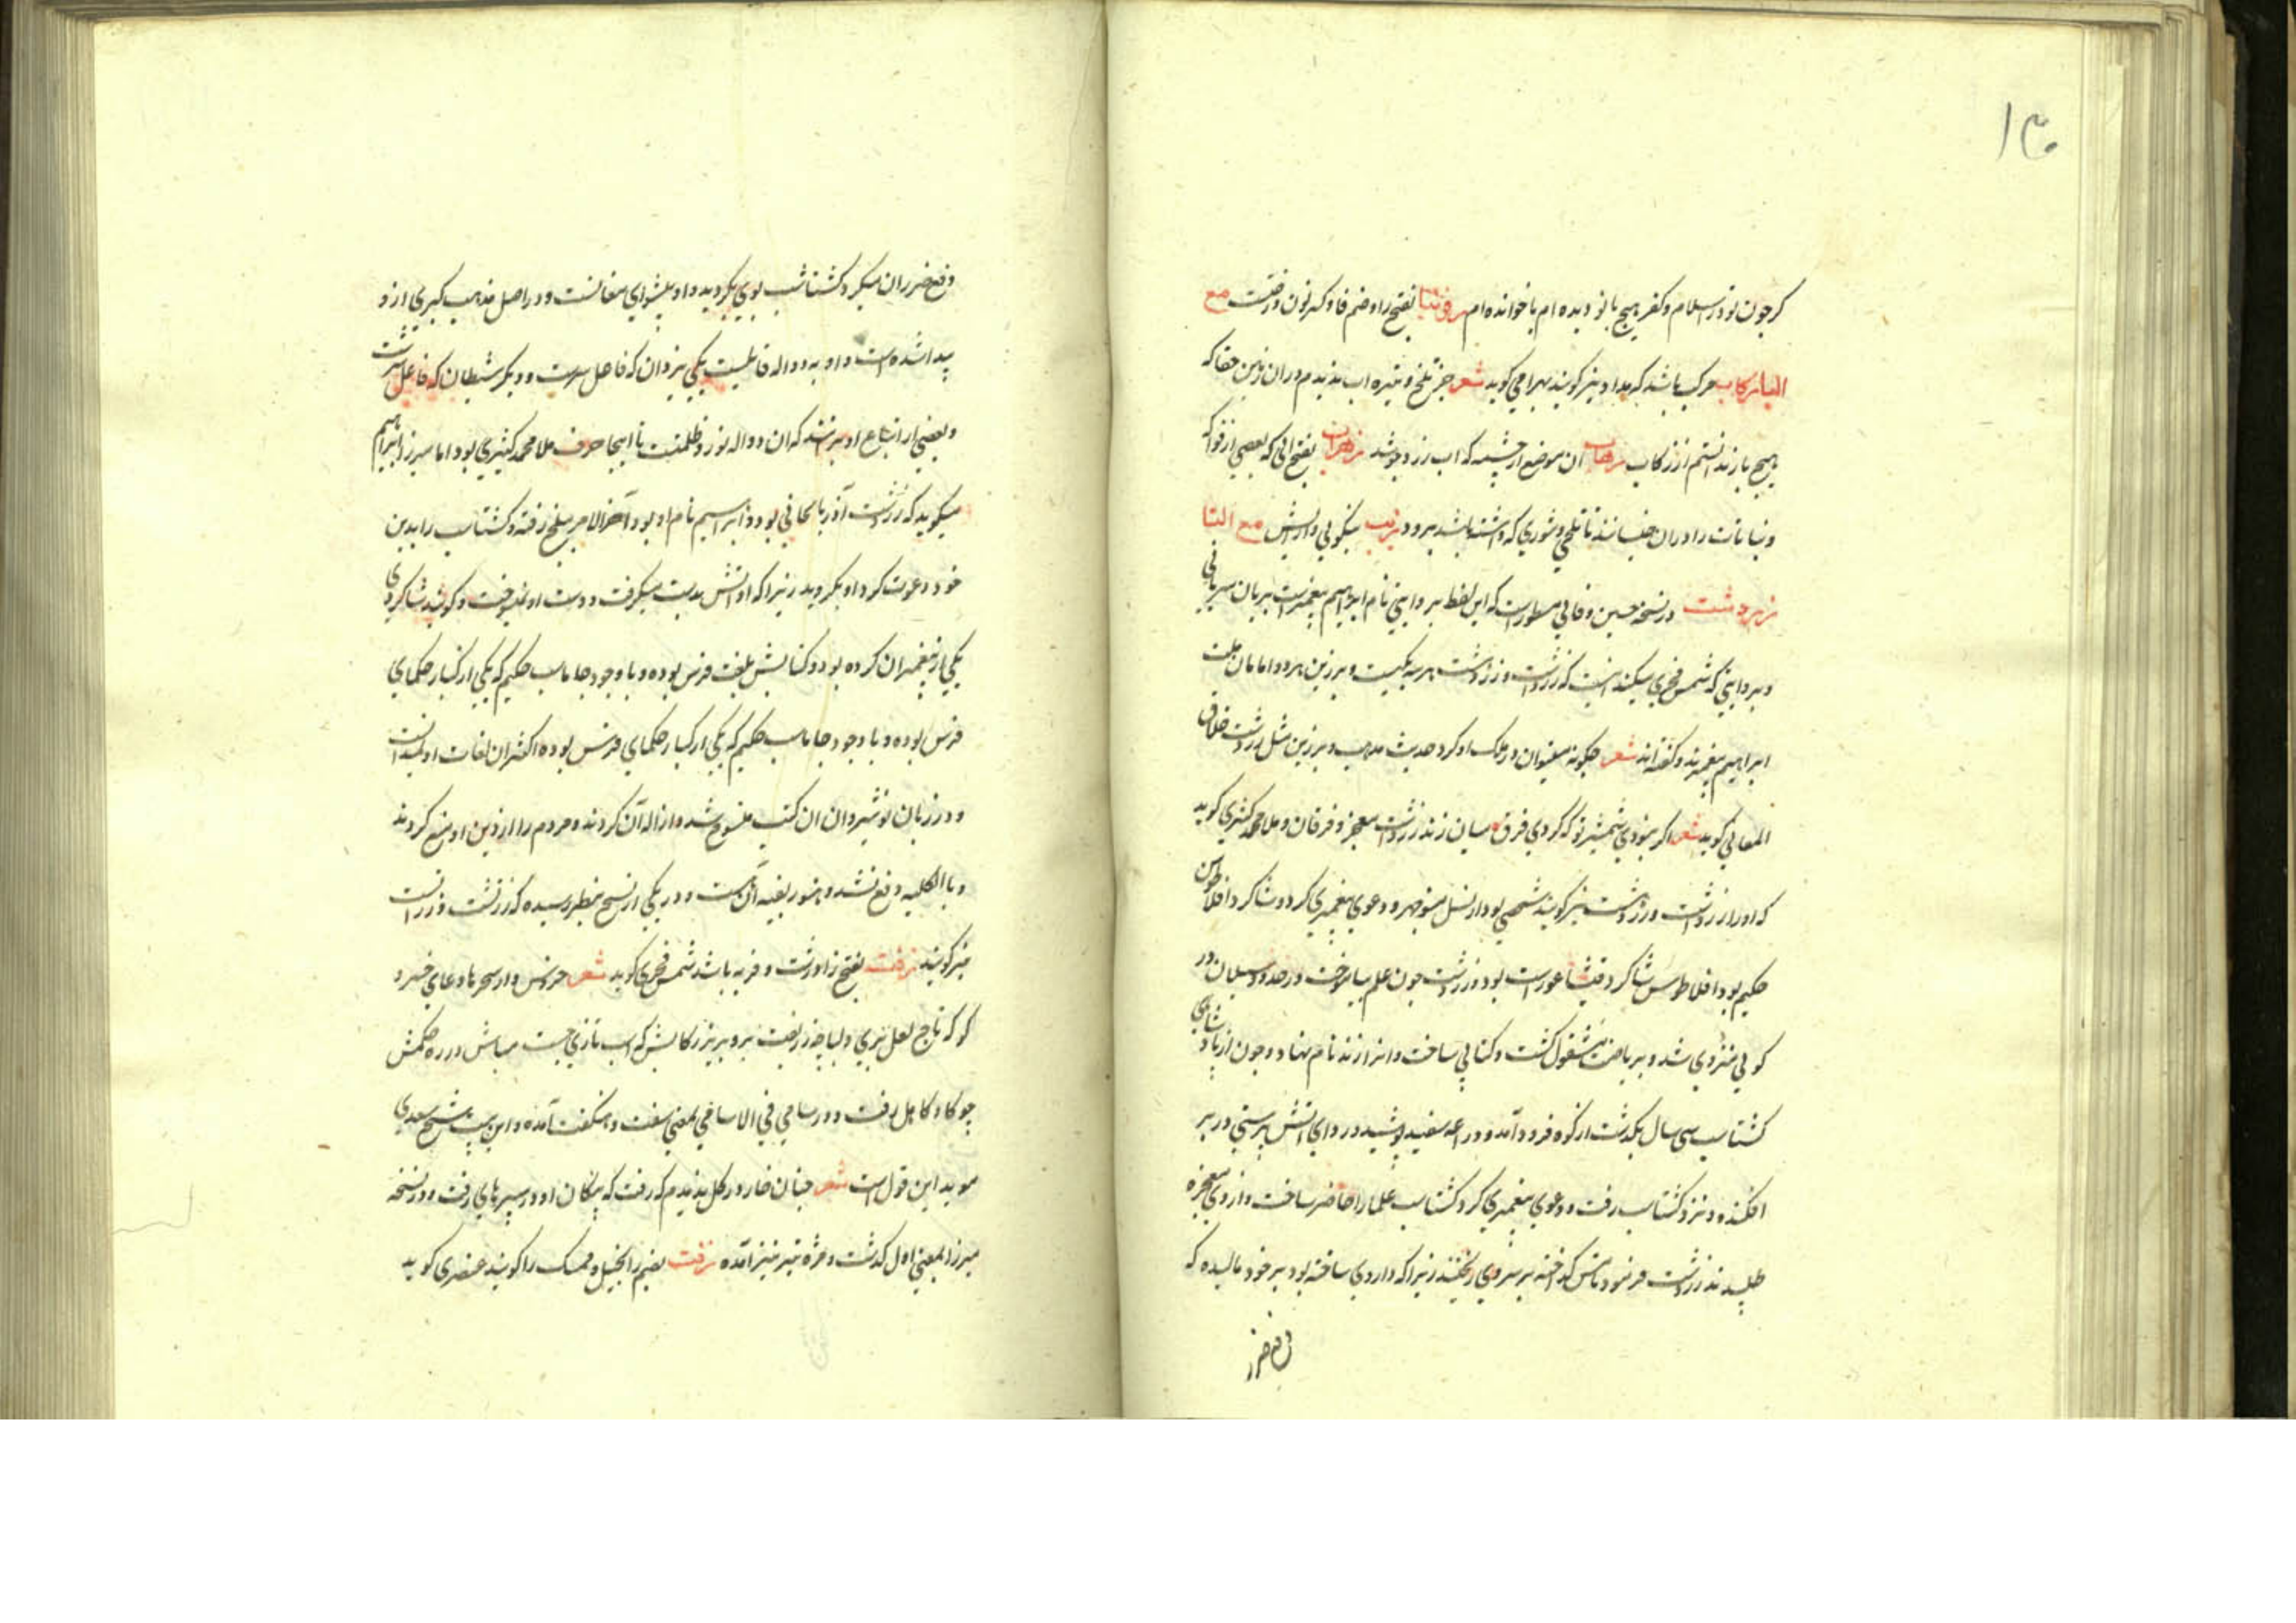 ۱۳۰
کر چون تو در اسلام و کفر هیچ باز دیده ام یا خوانده ام زفتنا بفتح را و ضم فا و کسر نون درخت مع
البا زکاب مرکب باشد که مداد نیز کویند بهرامی کوید شعر جز تلخ و تیره اب ندیدم در ان زمین حقا که
هیچ باز ندانستم از زکاب زهاب ان موضع از چشمه که اب ازو جوشد بفتح انی که بعضی از فواکه
و نباتات را در ان خیسانند تا تلخی و شوری که داشته باشد برود زیب نیکویی و آرایش مع التا
زردشت در نسخه حسین وفایی مسطور است که این لفظ بروایتی نام ابراهیم پیغمبر است بزبان سریانی
و بروایتی که شمس فخری میکند اینست که زردشت و زردشت هر سه یکیست و برزین هر دو امامان ملت
ابراهیم پیغمبرند و کفته اند شعر چکونه میتوان در ملک او کرد حدیث مذهب و برزین مثل زردشت خلاق
المعانی کوید شعر اکر نبودی شمشیر تو که کردی فرق میان زند زردشت و معجز و فرقان و ملا محمد کثیری کوید
که او را زردشت و زردشت نیز کویند شخصی بود از نسل منوچهر و دعوی پیغمبری کرد و شاکرد افلاطوس
حکیم بود افلاطوس شاکرد فیثاغورث بود و زردشت چون علم بیاموخت در حدود سبلان در
کوهی منزوی شد و بریاضت مشغول کشت و کتابی ساخت و انرا زند نام نهاد و چون از پادشاهی
کشتاسب سی سال بکذشت از کوه فرود آمد و دراعه سفید پوشید و ردای اتش پرستی در بر
افکنده و نزد کشتاسب رفت و دعوی پیغمبری کرد کشتاسب علما را حاضر ساخت و از وی معجزه
طلبیدند زردشت فرمود تا مس کداخته بر سر وی ریختند زیرا که داروی ساخته بود بر خود مالیده که
دفع ضرر
دفع ضرر ان میکرد کشتاسب بوی بکروید و او پیشوای مغانست و در اصل مذهب کبری ازو
پیدا شده است و او به دو اله قایلست یکی یزدان که فاعل خیرست و دیکر شیطان که فاعل شرست
و بعضی از اتباع او برنند که ان دو اله نور و ظلمت تا اینجا حرف ملا محمد کثیری بود اما میرزا ابراهیم
میکوید که زردشت آذربایجانی بود و ابراهیم نام او بود آخر الامر ببلخ رفته و کشتاسب را بدین
خود دعوت کرد او بکروید زیرا که او اتش بدست میکرفت و دست او نمیسوخت و کویند شاکردی
یکی از پیغمبران کرده بود و کتابش بلغت فرس بوده و با وجود جاماسب حکیم که یکی از کبار حکمای
فرس بوده و با وجود جاماسب حکیم که یکی از کبار حکمای فرس بوده اکثر ان لغات او نمیدانست
و در زمان نوشیروان ان کتب منسوخ شد و ازاله آن کردند و مردم را از دین او منع کردند
و بالکلیه دفع نشد و هنوز بقیه آن هست و در یکی از نسخ بنظر رسیده که زرتشت و زرادشت
نیز کویند زفت بفتح زا درشت و فربه باشد شمس فخری کوید شعر خروس وار سحرها دعای خسرو
کو که تاج لعل نبری و لباجه زربفت برو بریز رکابش که اسب تازی جست مباش در ره حکمش
چو کاو کاهل زفت و در سامی فی الاسامی بمعنی سفت و هنکفت آمده و این بیت شیخ سعدی
موید این قول است شعر چنان خار در کل ندیدم که رفت که پیکان او در سپرهای زفت و در نسخه
میرزا بمعنی اول کذشت و مژه نیز آمده زفت بضم زا بخیل و ممسک را کویند عنصری کوید